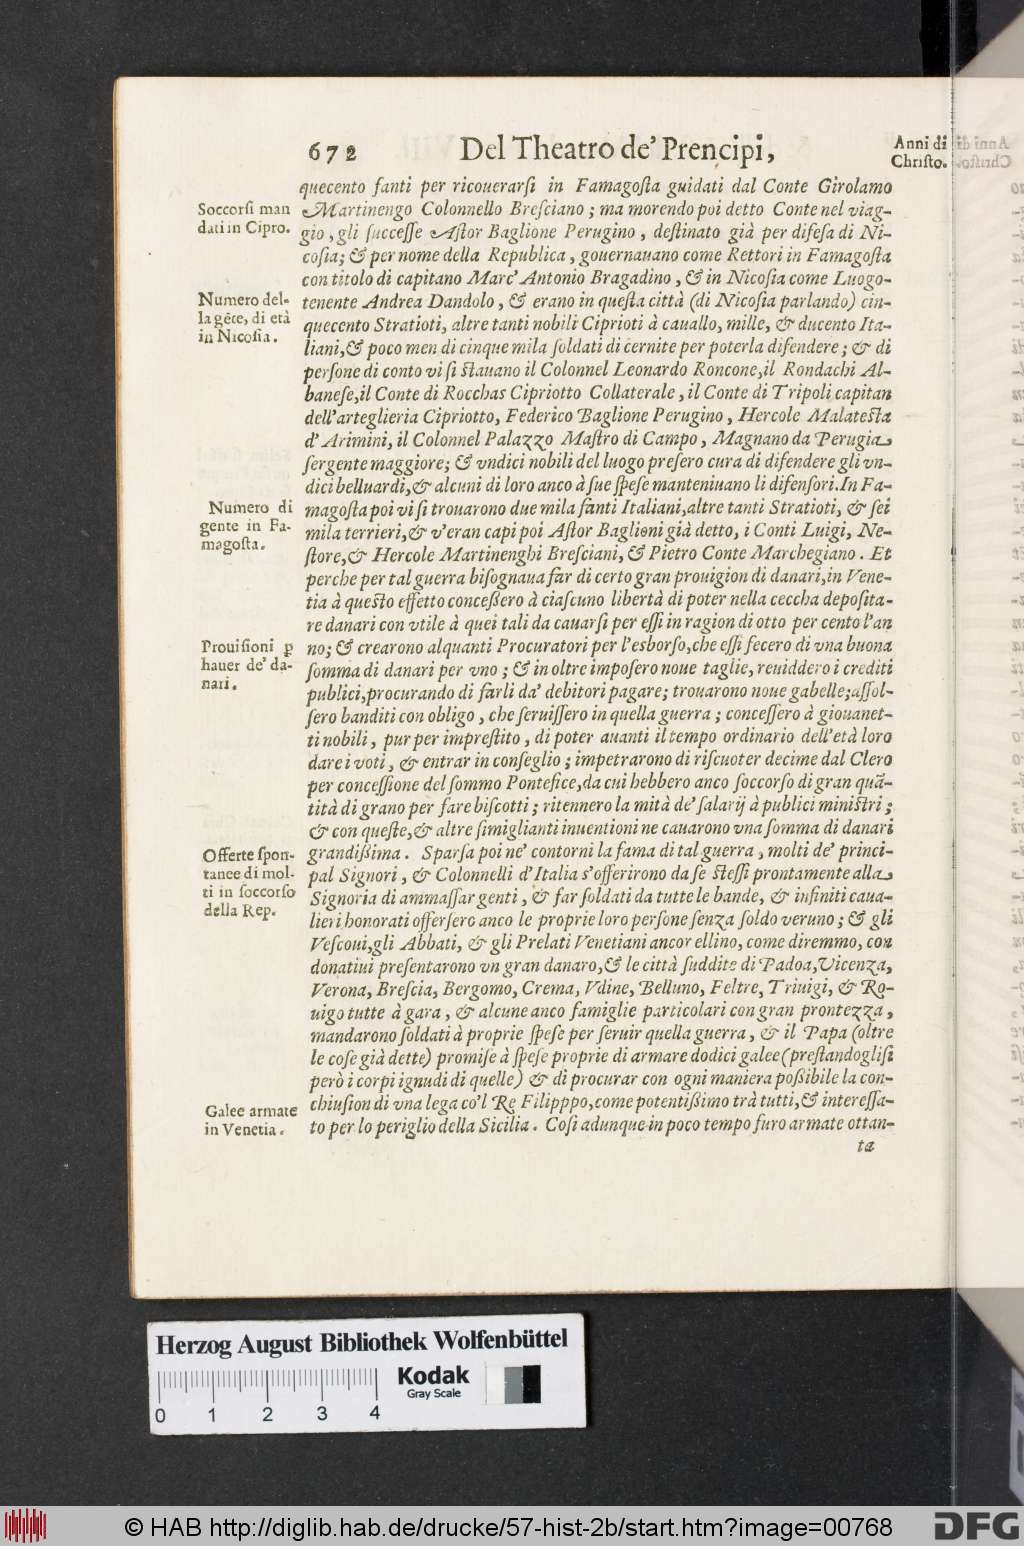 672 Del Theatro de' Prencipi, Anni di
Christo.
queceno fanti per ricouerarſi in Famagoſta guidati dal Conte Girolamo
Soccorſi man
dati in Cipro.
Martinengo Colonnello Breſciano; ma morendo poi detto Conte nel viag-
gio, gli ſucceſſe Aſtor Baglione Perugino, deſtinato già per difeſa di Ni-
coſia; & per nome della Republica, gouernauano come Rettori in Famagoſta
con titolo di capitano Marc' Antonio Bragadino, & in Nicoſia come Luogo-
Numero del-
la gẽte, di età
in Nicoſia.
tenente Andrea Dandolo, & erano in queſta città (di Nicoſia parlando) cin-
quecento Stratioti, altre tanti nobili Ciprioti à cauallo, mille, & ducento Ita-
liani, & poco men di cinque mila ſoldati di cernite per poterla difendere; & di
perſone di conto vi ſi ſtauano il Colonnel Leonardo Roncone, il Rondachi Al-
baneſe, il Conte di Rocchas Cipriotto Collaterale, il Conte di Tripoli capitan
dell'arteglieria Cipriotto, Federico Baglione Perugino, Hercole Malateſta
d'Arimini, il Colonnel Palazzo Maſtro di Campo, Magnano da Perugia
ſergente maggiore; & vndici nobili del luogo preſero cura di difendere gli vn-
dici belluardi, & alcuni di loro anco à ſue ſpeſe manteniuano li difenſori. In Fa-
Numero di
gente in Fa-
magoſta.
magoſta poi vi ſi trouarono due mila fanti Italiani, altre tanti Stratioti, & ſei
mila terrieri, & v'eran capi poi Aſtor Baglioni già detto, i Conti Luigi, Ne-
ſtore, & Hercole Martinenghi Breſciani, & Pietro Conte Marchegiano. Et
perche per tal guerra biſognaua far di certo gran prouigion di danari, in Vene-
tia à queſto effetto conceßero à ciaſcuno libertà di poter nella ceccha depoſita-
re danari con vtile à quei tali da cauarſi per eſſi in ragion di otto per cento l'an
Prouiſioni ꝑ
hauer de' da-
nari.
no; & crearono alquanti Procuratori per l'esborſo, che eſſi fecero di vna buona
ſomma di danari per vno; & in oltre impoſero noue taglie, reuiddero i crediti
publici, procurando di farli da' debitori pagare; trouarono noue gabelle; aſſol-
ſero banditi con obligo, che ſeruiſſero in quella guerra; conceſſero à giouanet-
ti nobili, pur per impreſtito, di poter auanti il tempo ordinario dell'età loro
dare i voti, & entrar in conſeglio; impetrarono di riſcuoter decime dal Clero
per conceſſione del ſommo Pontefice, da cui hebbero anco ſoccorſo di gran quã-
tità di grano per fare biſcotti; ritennero la mità de' ſalarij à publici miniſtri;
& con queſte, & altre ſimiglianti inuentioni ne cauarono vna ſomma di danari
Offerte ſpon-
tanee di mol-
ti in ſoccorſo
della Rep.
grandißima. Sparſa poi ne' contorni la fama di tal guerra, molti de' princi-
pal Signori, & Colonnelli d'Italia s'offerirono da ſe ſteſſi prontamente alla
Signoria di ammaſſar genti, & far ſoldati da tutte le bande, & infiniti caua-
lieri honorati offerſero anco le proprie loro perſone ſenza ſoldo veruno; & gli
Veſcoui, gli Abbati, & gli Prelati Venetiani ancor ellino, come diremmo, con
donatiui preſentarono vn gran danaro, & le città ſuddite di Padoa, Vicenza,
Verona, Breſcia, Bergomo, Crema, Vdine, Belluno, Feltre, Triuigi, & Ro-
uigo tutte à gara, & alcune anco famiglie particolari con gran prontezza,
mandarono ſoldati à proprie ſpeſe per ſeruir quella guerra, & il Papa (oltre
le coſe già dette) promiſe à ſpeſe proprie di armare dodici galee (preſtandogliſi
però i corpi ignudi di quelle) & di procurar con ogni maniera poßibile la con-
Galee armate
in Venetia.
chiuſion di vna lega co'l Re Filipppo, come potentißimo trà tutti, & intereſſa-
to per lo periglio della Sicilia. Coſi adunque in poco tempo furo armate ottan-
ta
Herzog August Bibliothek Wolfenbüttel
Kodak
Gray Scale
0 1 2 3 4
© HAB http://diglib.hab.de/drucke/57-hist-2b/start.htm?image=00768
DFG